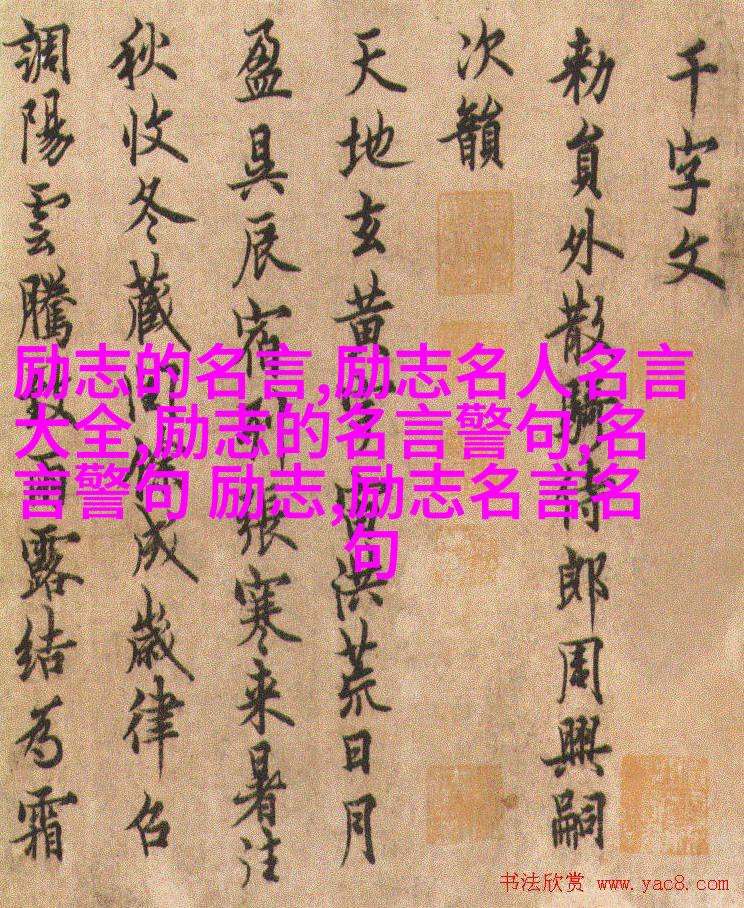 千字文
勅員外散騎侍郎周興嗣
次韻
天地玄黄宇宙洪荒日月
盈昃辰宿列張寒来暑往
秋收冬蔵閏餘成歲律召
調陽雲騰致雨露結為霜
励志的名言,励志名人名言
大全,励志的名言警句,名
言警句 励志,励志名言名
句
书法欣赏 www.yac8.com